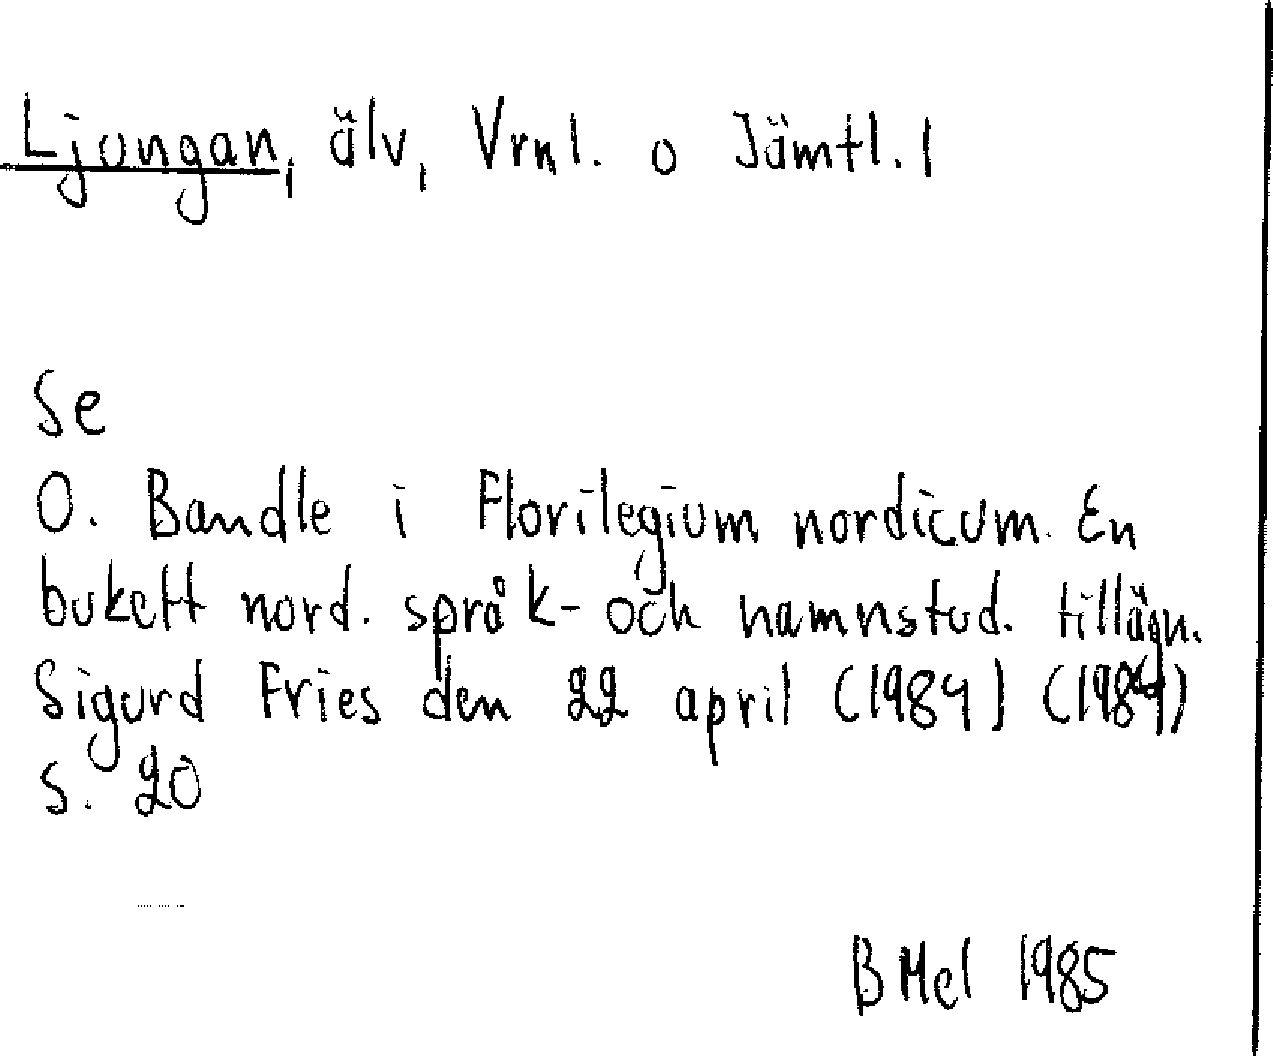 Ljungan, älv, Vrnl. o Jämtl. l
Se
O. Bandle i Florilegium nordicum. En
bukett nord. språk- och namnstud. tillägn.
Sigurd Fries den 22 april (1984) (1984)
s. 20
B Mel 1985